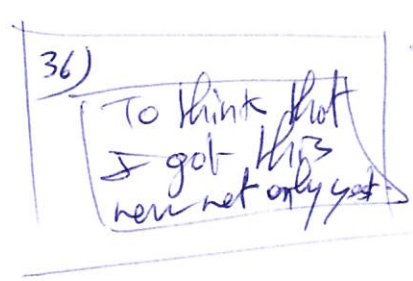 36)
To think that
I got this
new net only yest